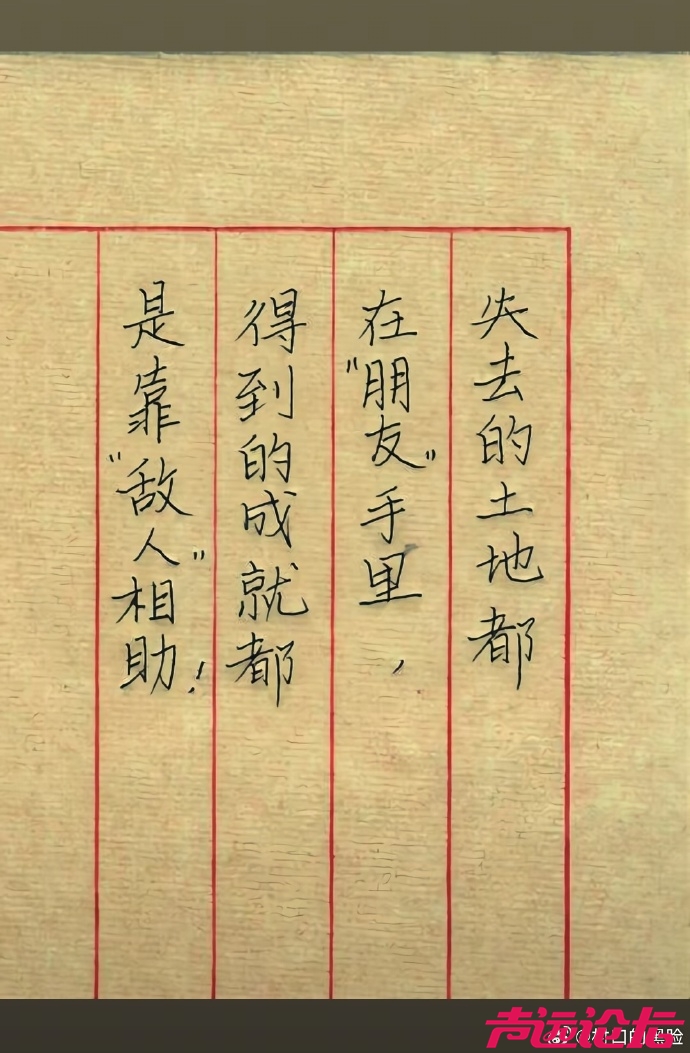 失去的土地都
在"朋友"手里，
得到的成就都
是靠"敌人"相助！
声远论坛